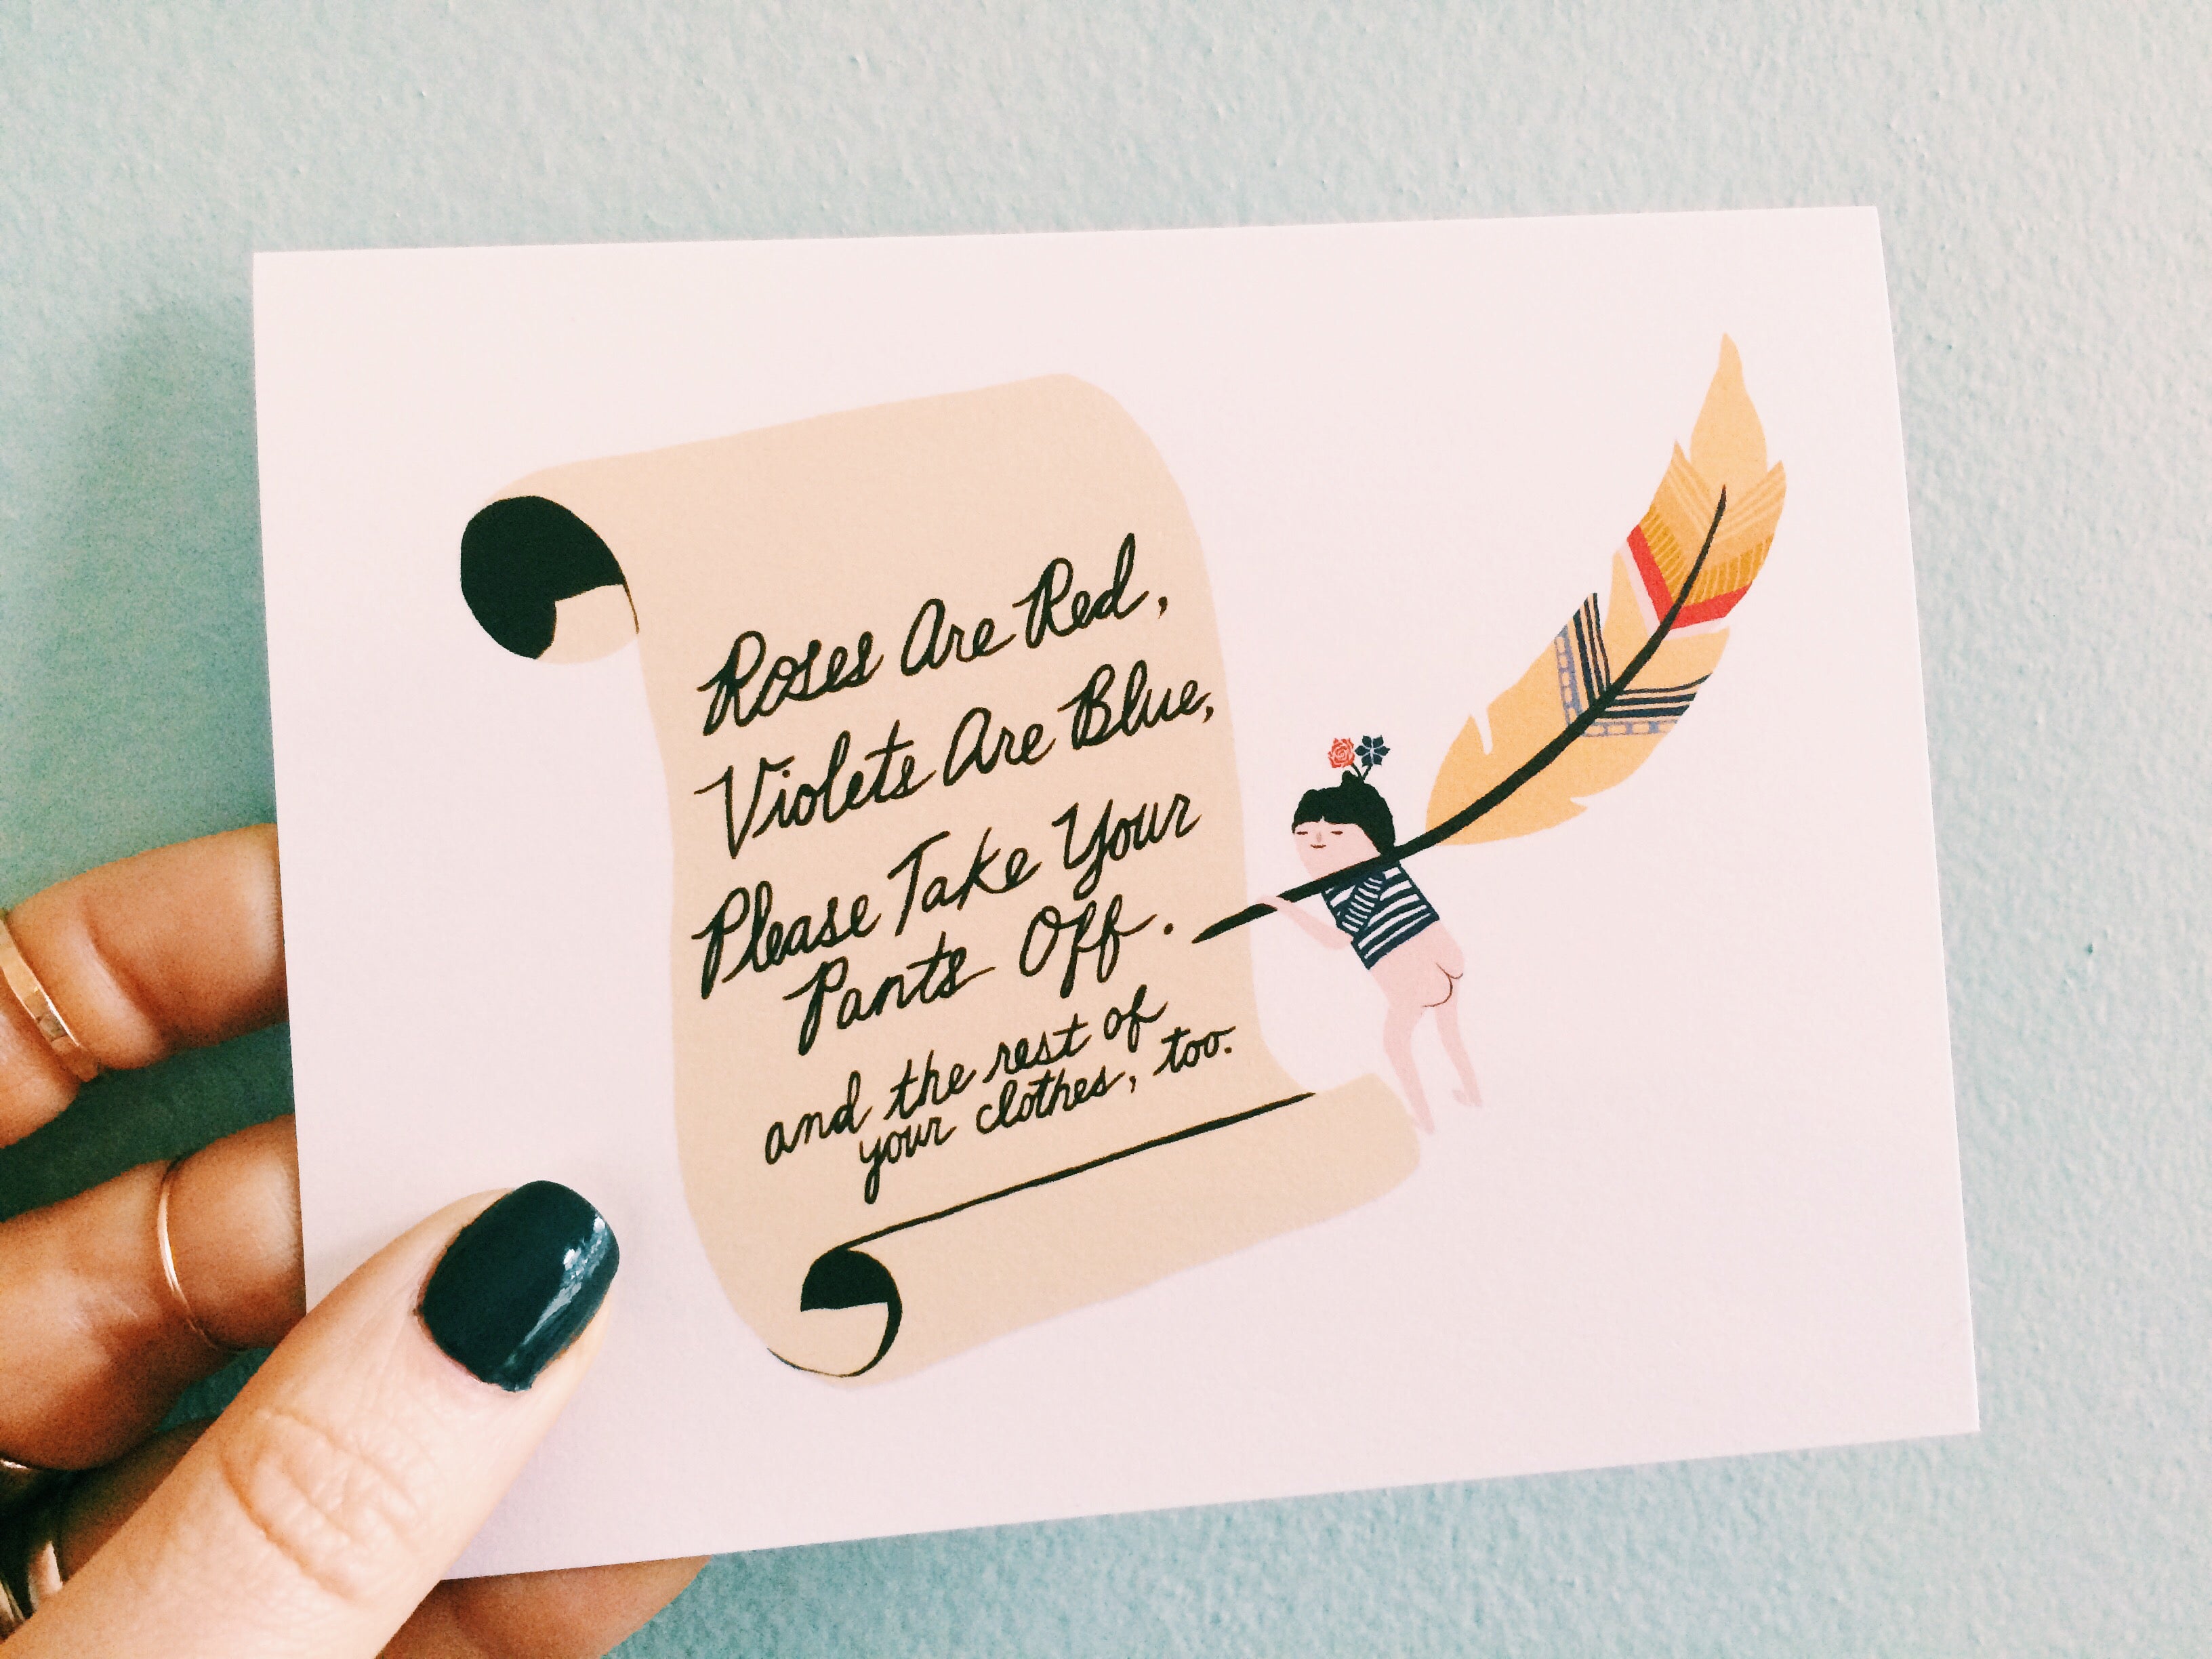 Roses Are Red,
Violets Are Blue,
Please Take Your
Pants Off.
and the rest of
your clothes, too.